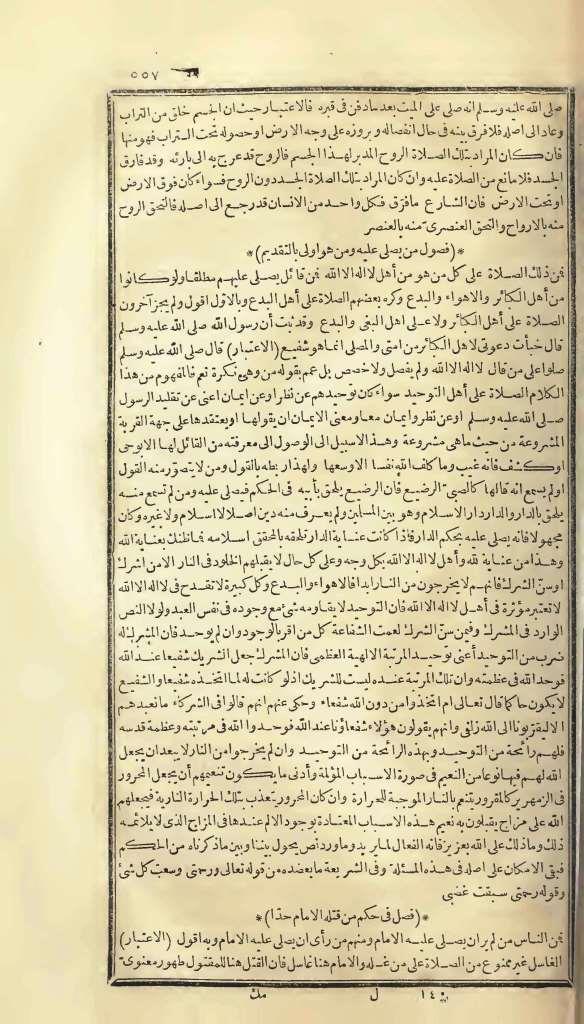 ٥٥٧
صلى الله عليه وسلم انه صلى على الميت بعد مادفن فى قبره فالاعتبار حيث ان الجسم خلق من التراب
وعاد الى اصله فلا فرق بينه فى حال انفصاله وبروزه على وجه الارض او حصوله تحت التراب فهو منها
فان كان المراد بتلك الصلاة الروح المدبر لهذا الجسم فالروح قد عرج به الى بارئه وقد فارق
الجسد فلا مانع من الصلاة عليه وان كان المراد بتلك الصلاة الجسد دون الروح فسواء كان فوق الارض
او تحت الارض فان الشارع مافرق فكل واحد من الانسان قد رجع الى اصله فالتحق الروح
منه بالارواح والتحق العنصرى منه بالعنصر
*(فصول من يصلى عليه ومن هو اولى بالتقديم)*
فمن ذلك الصلاة على كل من هو من أهل لا اله الا الله فمن قائل يصلى عليهم مطلقا ولو كانوا
من أهل الكبائر والاهواء والبدع وكره بعضهم الصلاة على أهل البدع وبالاول اقول ولم يجز آخرون
الصلاة على أهل الكبائر ولا على اهل البغى والبدع وقد ثبت أن رسول الله صلى الله عليه وسلم
قال خبأت دعوتى لاهل الكبائر من امتى والمصلى انما هو شفيع (الاعتبار) قال صلى الله عليه وسلم
صلوا على من قال لا اله الا الله ولم يفصل ولا خصص بل عمم بقوله من وهى نكرة نعم فالمفهوم من هذا
الكلام الصلاة على أهل التوحيد سواء كان توحيدهم عن نظر او عن ايمان اعنى عن تقليد الرسول
صلى الله عليه وسلم او عن نظر وايمان معا ومعنى الايمان ان يقولها او يعتقدها على جهة القربة
المشروعة من حيث ماهى مشروعة وهذا لاسبيل الى الوصول الى معرفته من القائل لها الا بوحى
او كشف فانه غيب وما كلف الله نفسا الا وسعها ولهذا ربطه بالقول ومن لا يتصور منه القول
او لم يسمع انه قالها كالصبى الرضيع فان الرضيع يلحق بأبيه فى الحكم فيصلى عليه ومن لم تسمع منه
يلحق بالدار والدار دار الاسلام وهو بين المسلمين ولم يعرف منه دين اصلا لا اسلام ولا غيره وكان
مجهولا فانه يصلى عليه بحكم الدار فاذا كانت عناية الدار تلحقه بالمحقق اسلامه فما ظنك بعناية الله
وهذا من عناية لله وأهل لا اله الا الله بكل وجه وعلى كل حال لا يقبلهم الخلود فى النار الا من اشرك
او سن الشرك فانهم لا يخرجون من النار ابدا فالاهواء والبدع وكل كبيرة لا تقدح فى لا اله الا الله
لا تعتبر مؤثرة فى أهل لا اله الا الله فان التوحيد لا يقاومه شئ مع وجوده فى نفس العبد ولولا النص
الوارد فى المشرك وفيمن سن الشرك لعمت الشفاعة كل من اقر بالوجود وان لم يوحد فان المشرك له
ضرب من التوحيد أعنى توحيد المرتبة الالهية العظمى فان المشرك جعل الشريك شفيعا عند الله
فوحد الله فى عظمته وان تلك المرتبة عنده ليست للشريك اذ لو كانت له لما اتخذه شفيعا والشفيع
لا يكون حاكما قال تعالى ام اتخذوا من دون الله شفعاء وحكى عنهم انهم قالوا فى الشركاء مانعبدهم
الا ليقربونا الى الله زلفى وانهم يقولون هؤلاء شفعاؤنا عند الله فوحدوا الله فى مرتبته وعظمة قدسه
فلهم رائحة من التوحيد وبهذه الرائحة من التوحيد وان لم يخرجوا من النار لا يبعد ان يجعل
الله لهم فيها نوعا من النعيم فى صورة الاسباب المؤلمة وأدنى ما يكون تنعيمهم أن يجعل المحرور
فى الزمهرير كالمقرور يتنعم بالنار الموجبة للحرارة وان كان المحرور تعذب بتلك الحرارة النارية فيجعلهم
الله على مزاج يقبلون به نعيم هذه الاسباب المعتادة بوجود الالم عندها فى المزاج الذى لا يلائمه
ذلك وما ذلك على الله بعزيز فانه الفعال لما يريد وما ورد نص يحول بيننا وبين ما ذكرناه من الحكم
فبقى الامكان على اصله فى هذه المسئلة وفى الشريعة ما يعضده من قوله تعالى ورحمتى وسعت كل شئ
وقوله رحمتى سبقت غضبى
*(فصل فى حكم من قتله الامام حدا)*
فمن الناس من لم ير ان يصلى عليه الامام ومنهم من رأى ان يصلى عليه الامام وبه اقول (الاعتبار)
الغاسل غير ممنوع من الصلاة على من غسله والامام هنا غاسل فان القتل هنا للمقتول طهور معنوى
١٤٠ ل مك